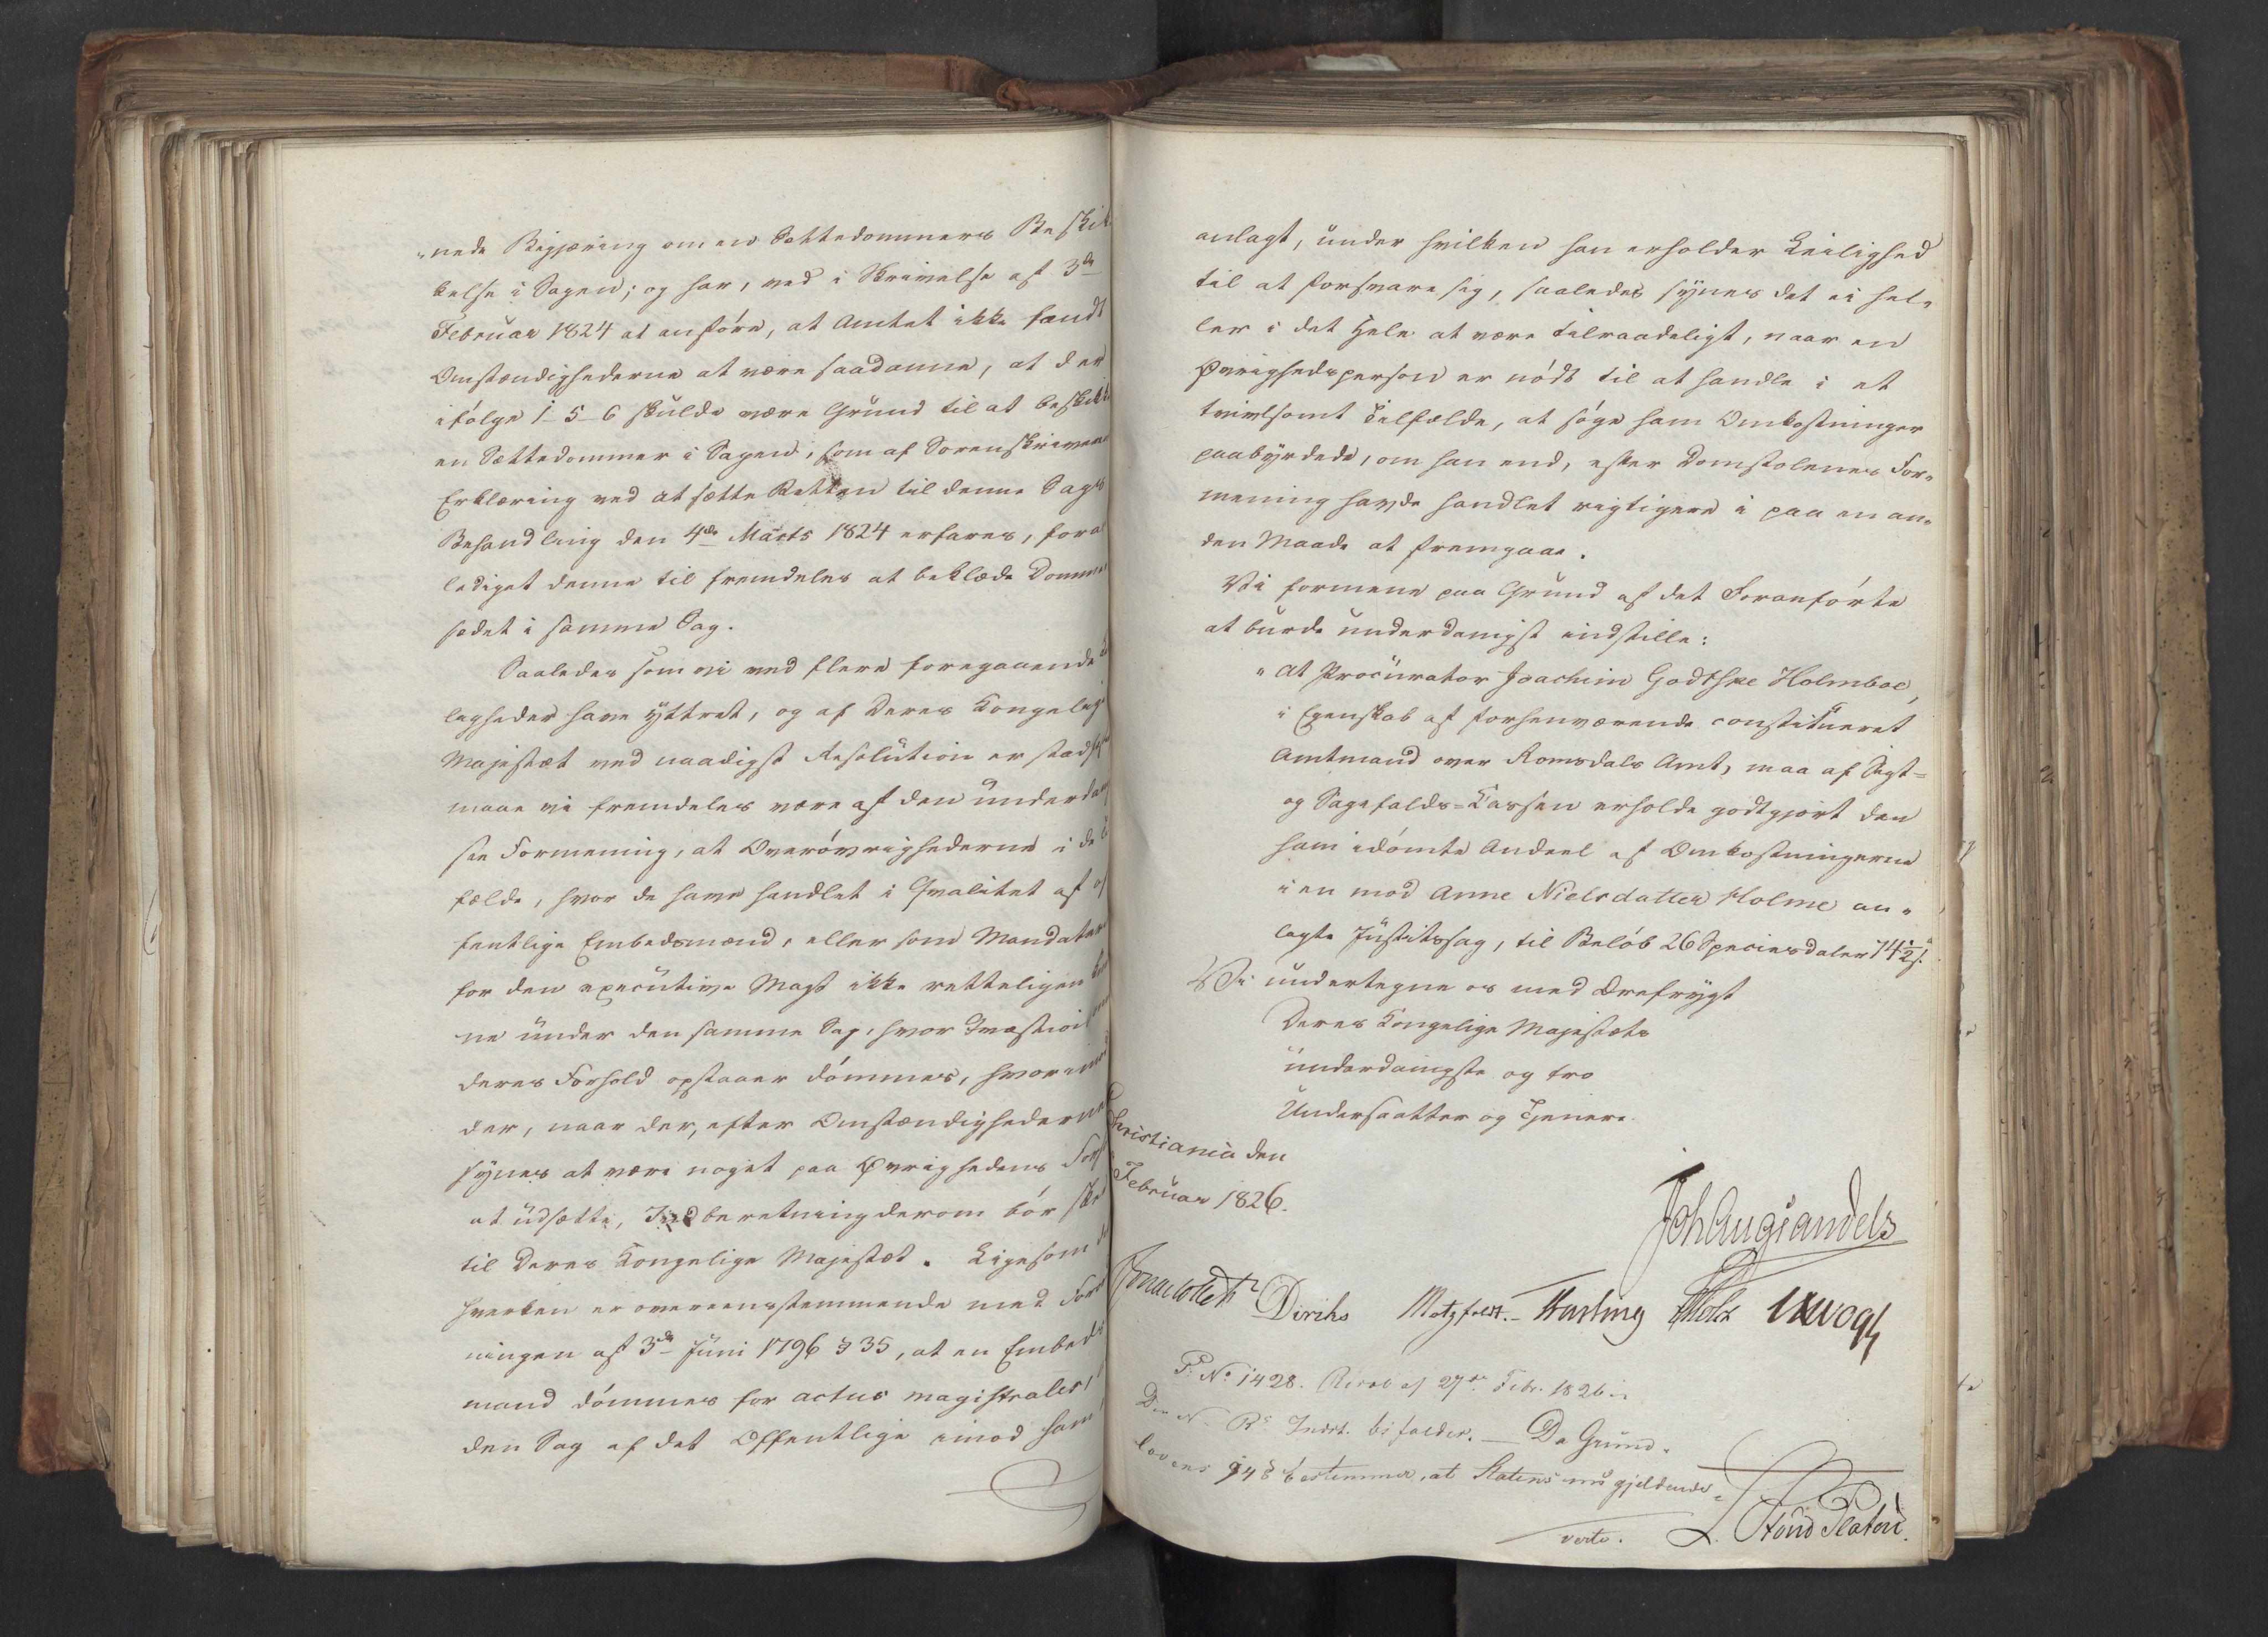 "nede Begjæring om en Sættedommers Beskik
kelse i Sagen; og har, ved i Skrivelse af 3de
Februar 1824 at anføre, at Amtet ikke fandt
Omstændighederne at være saadanne, at der
ifølge 1-5-6 skulde være Grund til at beskikke
en Sættedommer i Sagen, som af Sorenskriverens
Erklæring ved at sætte Retten til denne Sags
Behandling den 4de Marts 1824 erfares, foran
lediget denne til fremdeles at beklæde Dommer
sædet i samme Sag.
Saaledes som vi ved flere foregaaende
legheder have yttret, og af Deres Kongelige
Majestæt ved naadigst Resolution er stadfæstet
maae vi fremdeles være af den underdanig
ste Formening, at Overøvrighederne i de
fælde, hvor de have handlet i Qvalitet af of
fentlige Embedsmænd, eller som Mandatarer
for den executive Magt ikke retteligen kun
ne under den samme Sag, hvor Qvæstion om
deres Forhold opstaaer dømmes, hvorimod
der, naar der, efter Omstændighederne
synes at være noget paa Øvrighedens Forhold
at udsætte, Indberetning derom bør skee
til Deres Kongelige Majestæt. Ligesom de
hverken er overeensstemmende med Forord
ningen af 3die Juni 1796 § 35, at en Embeds
mand dømmes for actus magistrales,
den Sag af det Offentlige imod ham
anlagt, under hvilken han erholder Leilighed
til at forsvare sig, saaledes synes det ei hel-
ler i det Hele at være tilraadeligt, naar en
Øvrighedsperson er nødt til at handle i et
tvivlsomt Tilfælde, at søge ham Omkostninger
paabyrdede, om han end, efter Domstolenes For-
mening havde handlet rigtigere i paa en an-
den Maade at fremgaae.
Vi formene paa Grund af det Foranførte
at burde underdanigst indstille:
"At Procurator Joachim Godtske Holmboe,
i Egenskab af forhenværende constitueret
Amtmand over Romsdals Amt, maa af Sigt-
og Sagefalds-Cassen erholde godtgjort den
ham idømte Andeel af Omkostningerne
i en mod Anne Nielsdatter Holme an-
lagte Justitssag, til Beløb 26 Speciesdaler 14½ s."
Vi undertegne os med Ærefrygt
Deres Kongelige Majestæts
underdanigste og tro
Undersaatter og Tjenere.
Christiania den
Februar 1826.
Joh Aug Sandels
Jonas Collett Diriks Motzfeldt. Fasting Holst Vogt
P. No 1428. Resol. af 27de Febr. 1826:
Den N. Rs Indst. bifaldes. — Da Grund-
lovens 94 § bestemmer, at Statens nu gjeldende
verte. L. Stoud Platou.